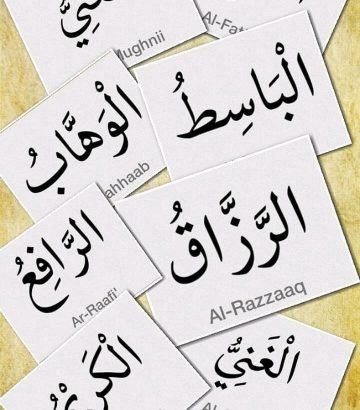 Mughnii
Al-Fat
الْبَاسِطُ
الْوَهَّابُ
ahhaab
الرَّزَّاقُ
Al-Razzaaq
الرَّافِعُ
Ar-Raafi'
الْغَنِيُّ